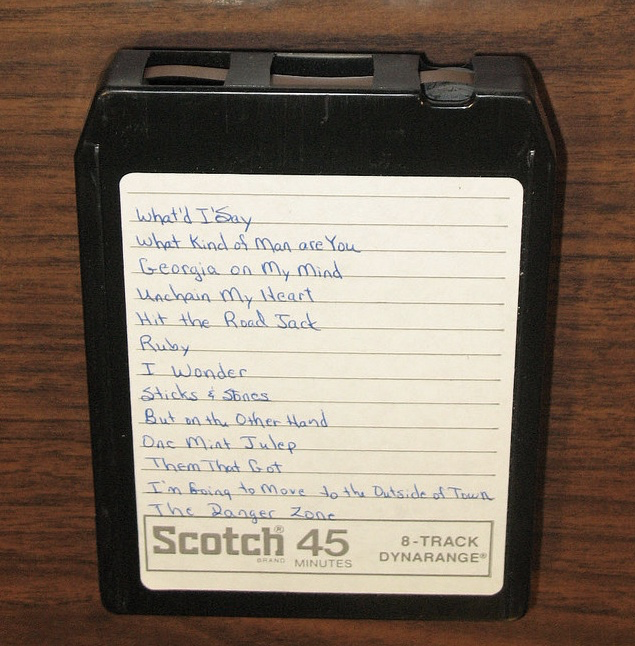 What'd I Say
What Kind of Man are You
Georgia on My Mind
Unchain My Heart
Hit the Road Jack
Ruby
I Wonder
Sticks & Stones
But on the Other Hand
One Mint Julep
Them That Got
I'm Going to Move to the Outside of Town
The Danger Zone
Scotch® 45 8-TRACK
BRAND MINUTES DYNARANGE®